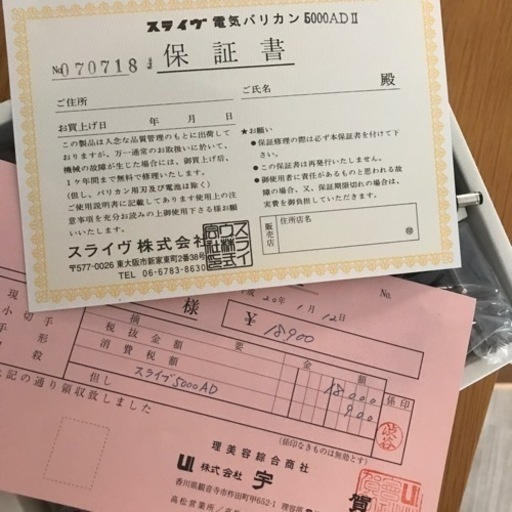 スライヴ 電気バリカン 5000AD II
№070718
保証書
殿
ご住所
ご氏名
お買上げ日 年 月 日
この製品は入念な品質管理のもとに出荷して
おりますが、万一通常のお取扱いに於いて、
機械の故障が生じた場合には、御買上げ後、
1ヶ年間まで無料で修理いたします。
(但し、バリカン用刃及び電池は除く)
ご使用説明書に記載してあります使用上の注
意事項を充分お読みの上御使用下さる様お願
いいたします。
スライヴ株式会社
〒577-0026 東大阪市新家東町2番38号
TEL 06-6783-8630
★お願い
●保証修理の際は必ず本保証書を付けて下
さい。
●この保証書は再発行いたしません。
●御使用者に責任があるものと思われる故
障の場合、又、保証期限切れの場合は、
実費を御負担していただきます。
販売店
住所店名
様
20年 1月 12日
No.
¥18,900
現
小切手
手形
殺
摘 要 金 額 係印
税抜金額 18000
消費税額 900
但し スライブ5000AD
上記の通り領収致しました
(係印なきものは無効とす)
理美容綜合商社
UI 株式会社 宇 賀
香川県観音寺市柞田町甲652-1
高松営業所